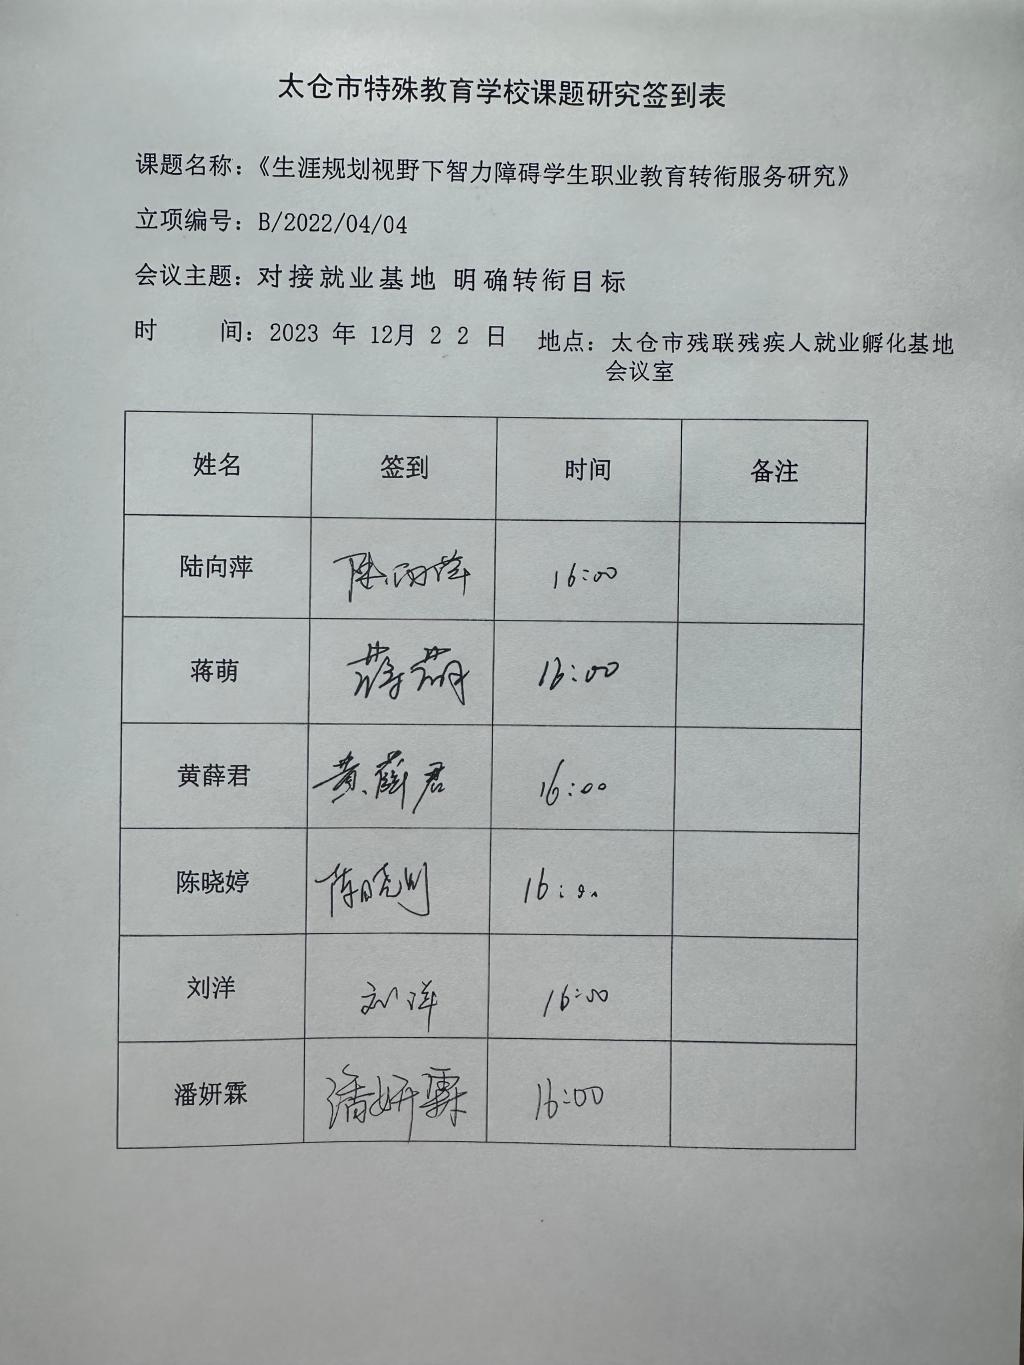 太仓市特殊教育学校课题研究签到表
课题名称：《生涯规划视野下智力障碍学生职业教育转衔服务研究》
立项编号：B/2022/04/04
会议主题：对接就业基地 明确转衔目标
时 间：2023 年 12月 2 2 日 地点：太仓市残联残疾人就业孵化基地
会议室
姓名 签到 时间 备注
陆向萍 陆向萍 16:00
蒋萌 蒋萌 16:00
黄薛君 黄薛君 16:00
陈晓婷 陈晓 16:
刘洋 刘洋 16:00
潘妍霖 潘妍霖 16:00